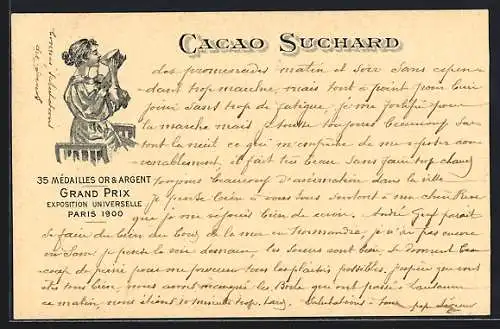 CACAO SUCHARD
des promenades matin et soir sans cepen
dant trop marcher, mais tout à point pour bien
jouir sans trop de fatigue, je me fortifie pour
la marche mais tousse toujours beaucoup sur
tout la nuit ce qui m'empêche de me reposer con
venablement, il fait très beau sans trop chaud
toujours beaucoup d'animation dans la ville
je pense bien à vous tous surtout à ma chère
que je me réjouis bien de revoir. André paraît
se faire du bien au bord de la mer en Normandie, je n'ai pas encore
vu je pense le voir demain, les sœurs sont bien se donnent beau
coup de peine pour me procurer tous les plaisirs possibles. J'espère que vous
êtes tous bien, nous avons manqué les qui ont passé Lausanne
ce matin, nous étions 10 minutes trop tard. Salutations à tous
35 MÉDAILLES OR & ARGENT
GRAND PRIX
EXPOSITION UNIVERSELLE
PARIS 1900
Salutations